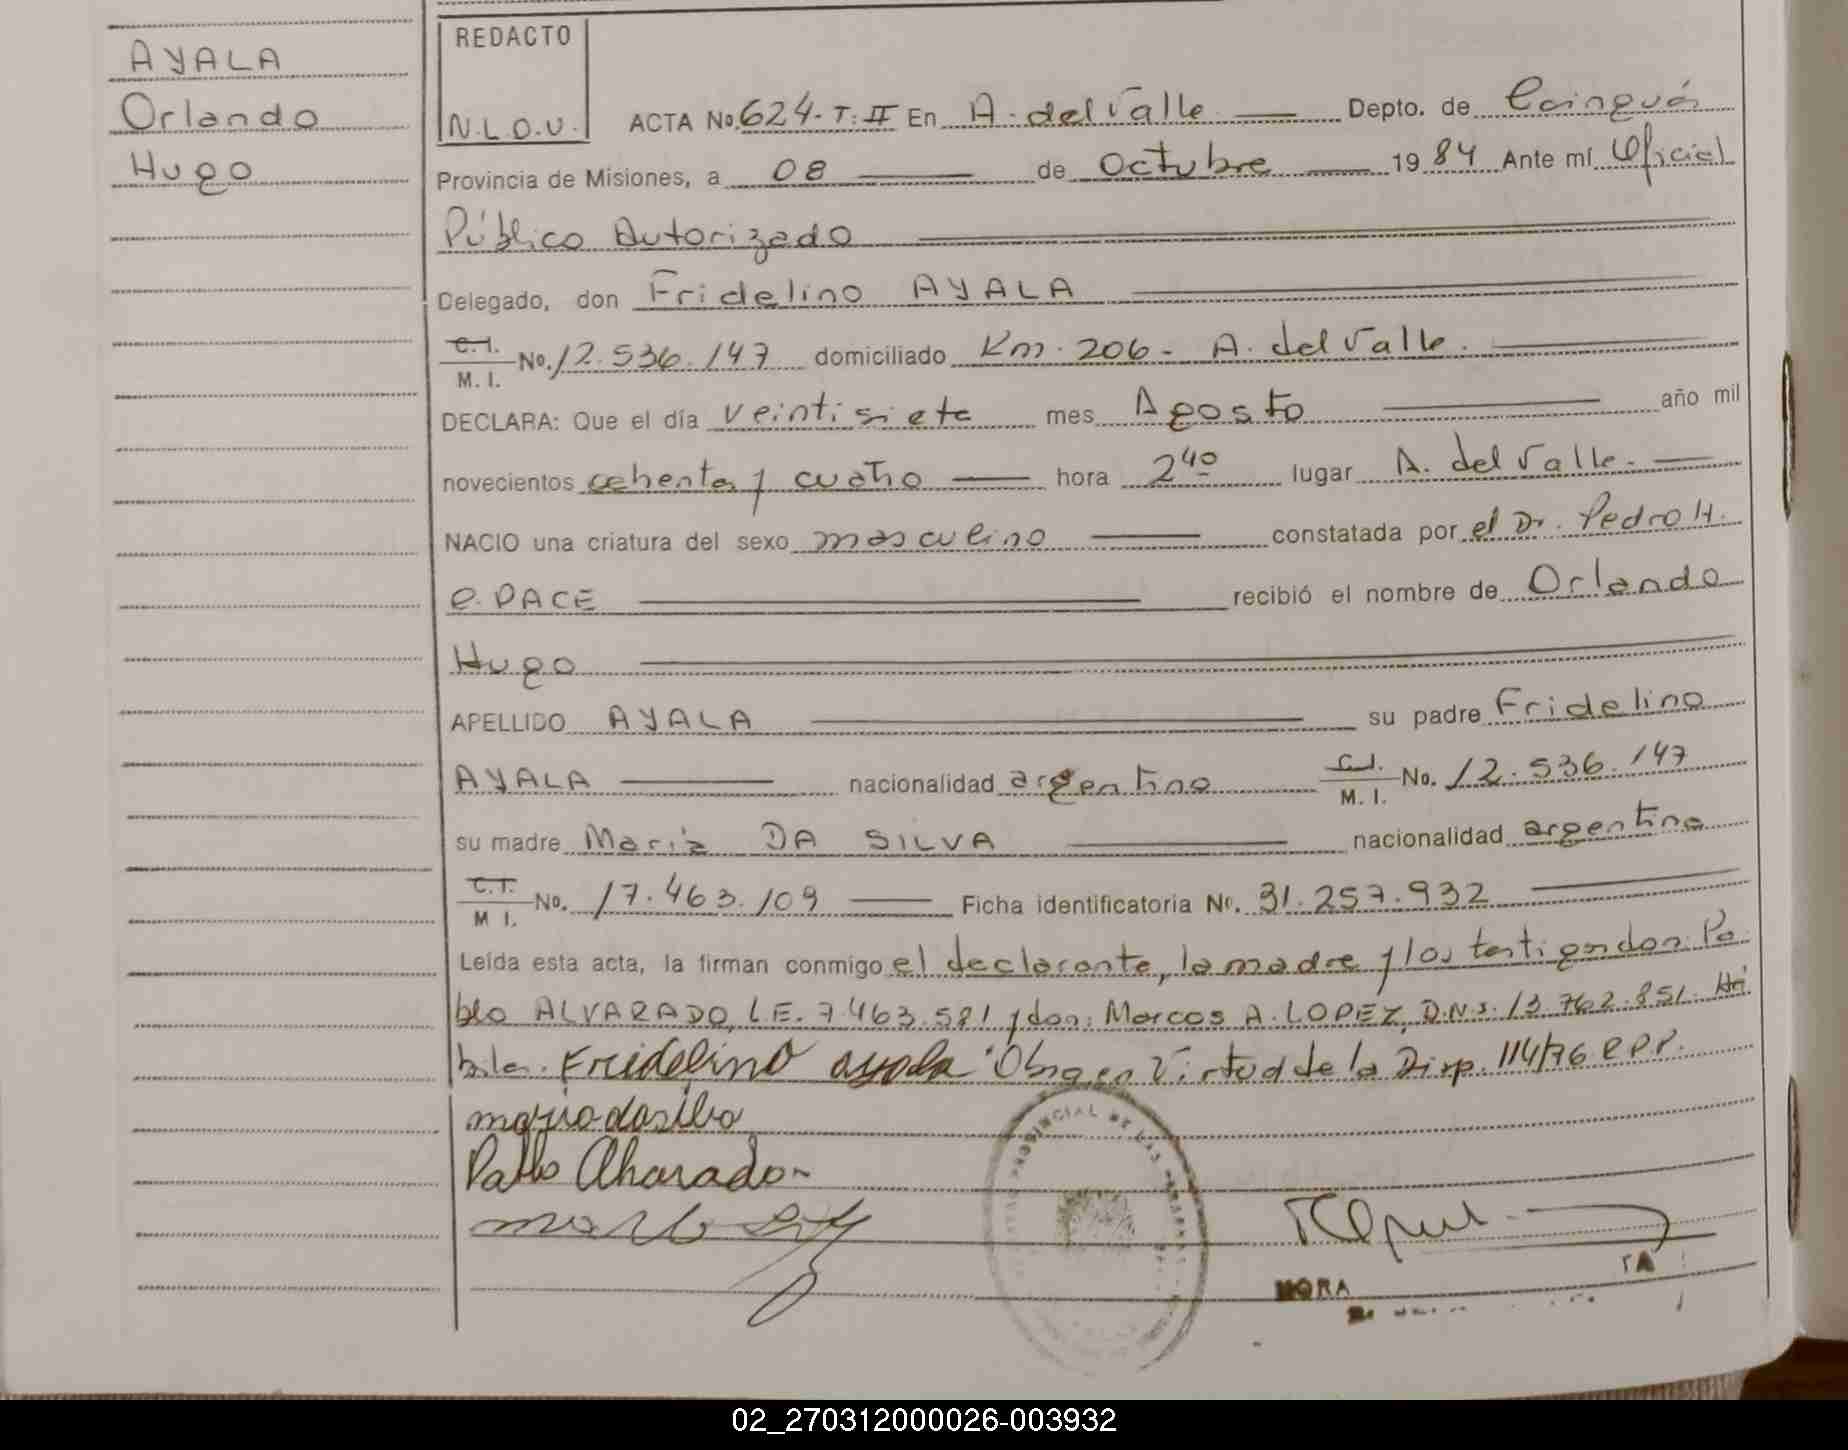 AYALA
Orlando
Hugo
REDACTO
N.L.O.V.
ACTA No. 624-T:II En A. del Valle Depto. de Cainguás
Provincia de Misiones, a 08 de Octubre 1984 Ante mí Oficial
Público Autorizado
Delegado, don Fridelino AYALA
C.I. M.I. No. 12.536.147 domiciliado Km. 206 - A. del Valle.
DECLARA: Que el día veintisiete mes Agosto año mil
novecientos ochenta y cuatro hora 2 40 lugar A. del Valle.
NACIO una criatura del sexo masculino constatada por el Dr. Pedro H.
C. PACE recibió el nombre de Orlando
Hugo
APELLIDO AYALA su padre Fridelino
AYALA nacionalidad argentino C.I. M.I. No. 12.536.147
su madre María DA SILVA nacionalidad argentina
C.I. M I. No. 17.463.109 Ficha identificatoria No. 31.257.932
Leída esta acta, la firman conmigo el declarante, la madre y los testigos don: Pa
blo ALVARADO, L.E. 7.463.581 y don: Marcos A. LOPEZ, D.N.I. 13.762.851. Há
biles. Fridelino ayala Obra en Virtud de la Disp. 114/76 R.P.P.
maria dasilva
Pablo Alvarado
HORA
02_270312000026-003932